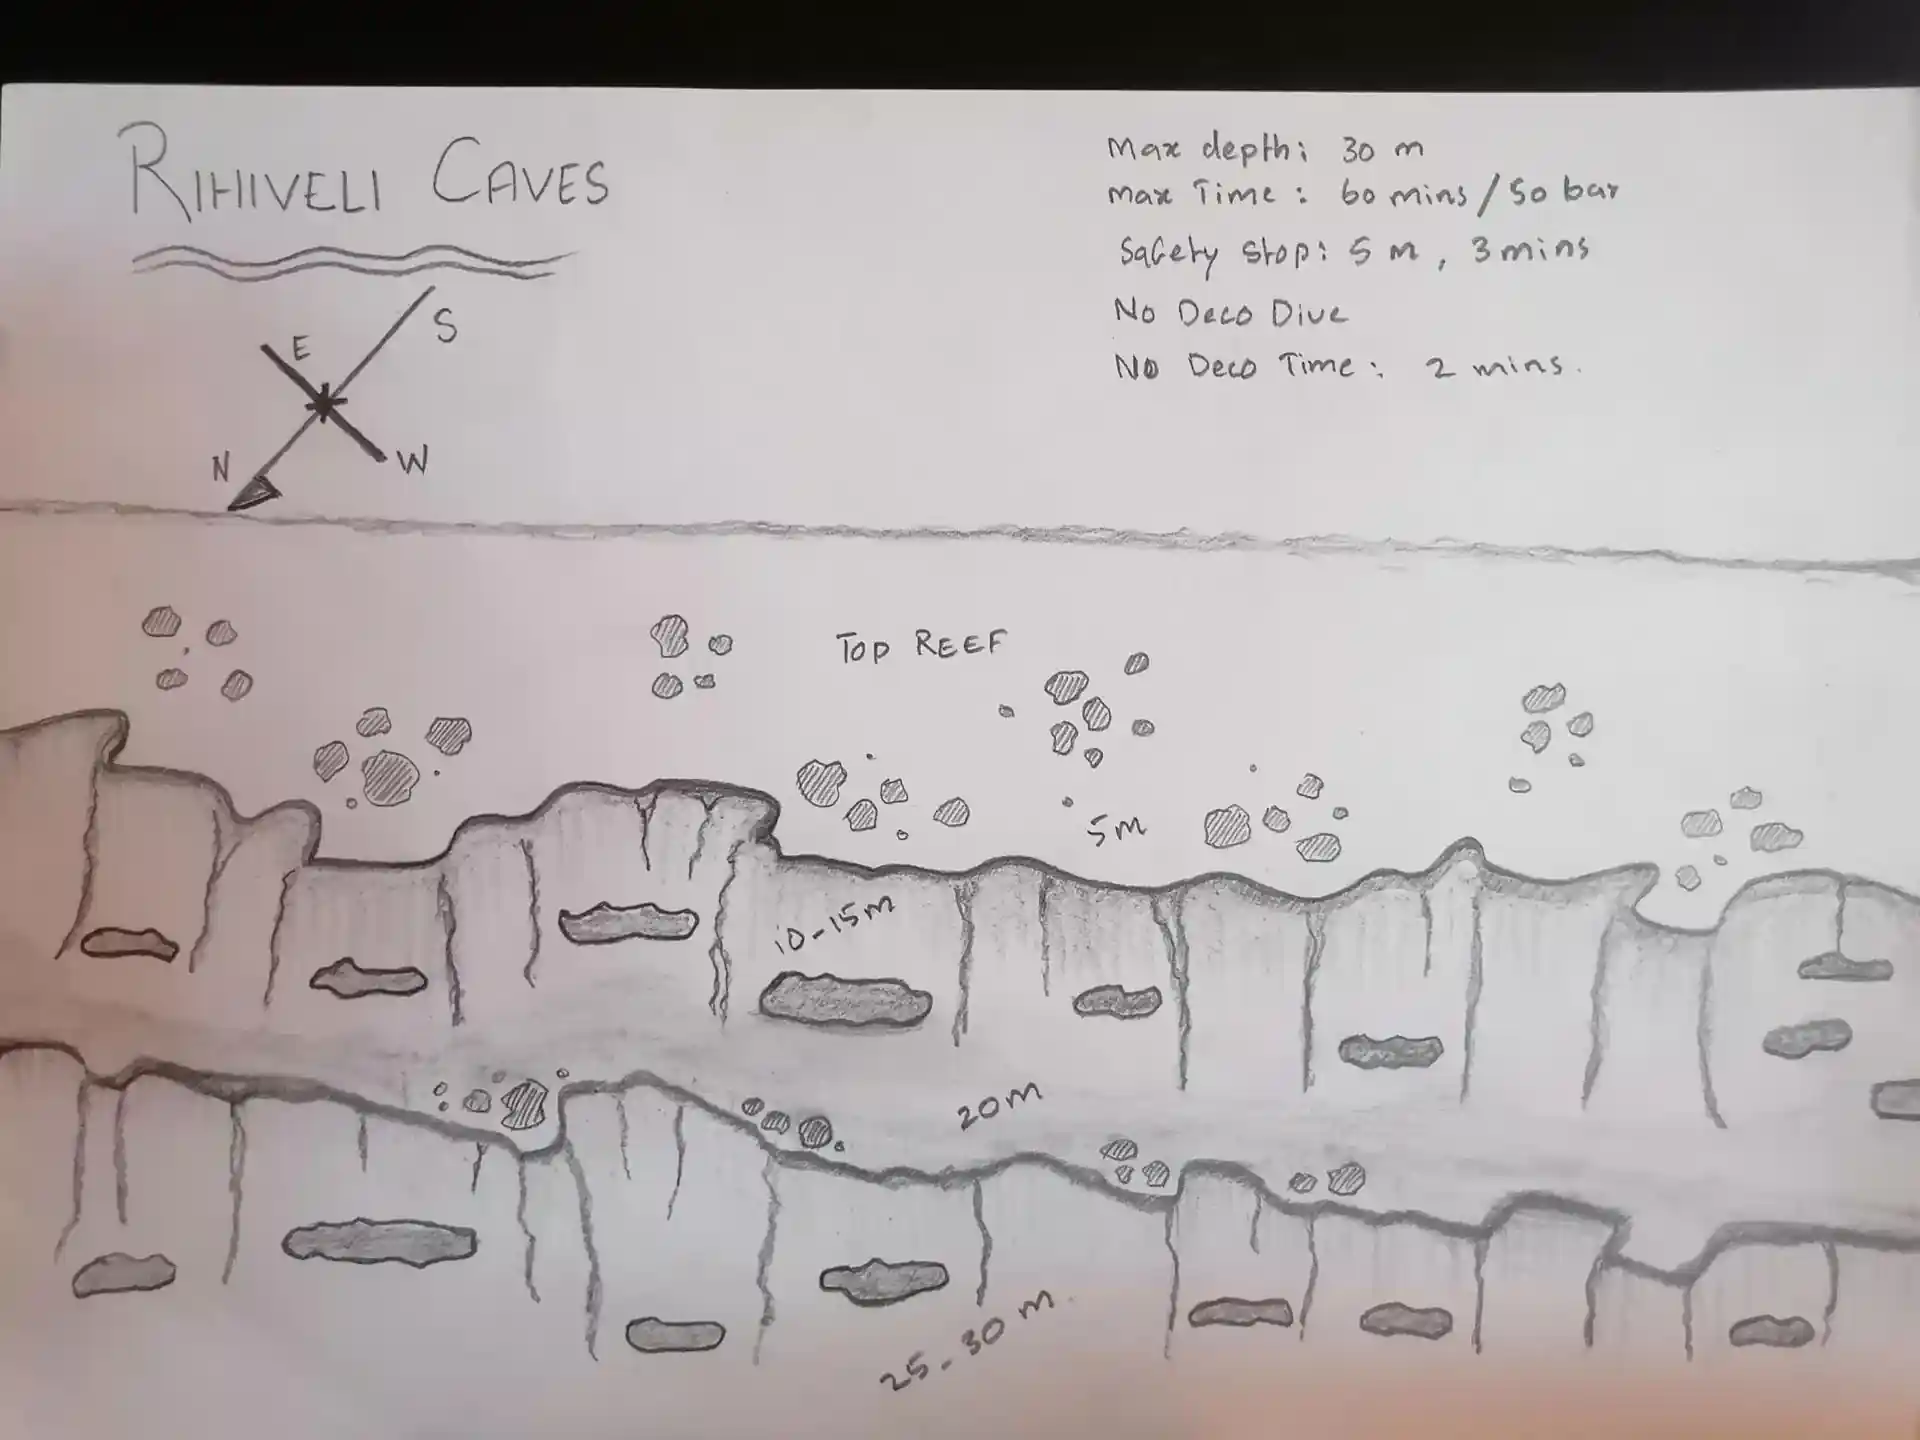 RIHIVELI CAVES
Max depth: 30 m
Max Time: 60 mins/50 bar
Safety Stop: 5 m, 3 mins
No Deco Dive
No Deco Time: 2 mins.
E
S
N
W
TOP REEF
5m
10-15m
20m
25-30 m.